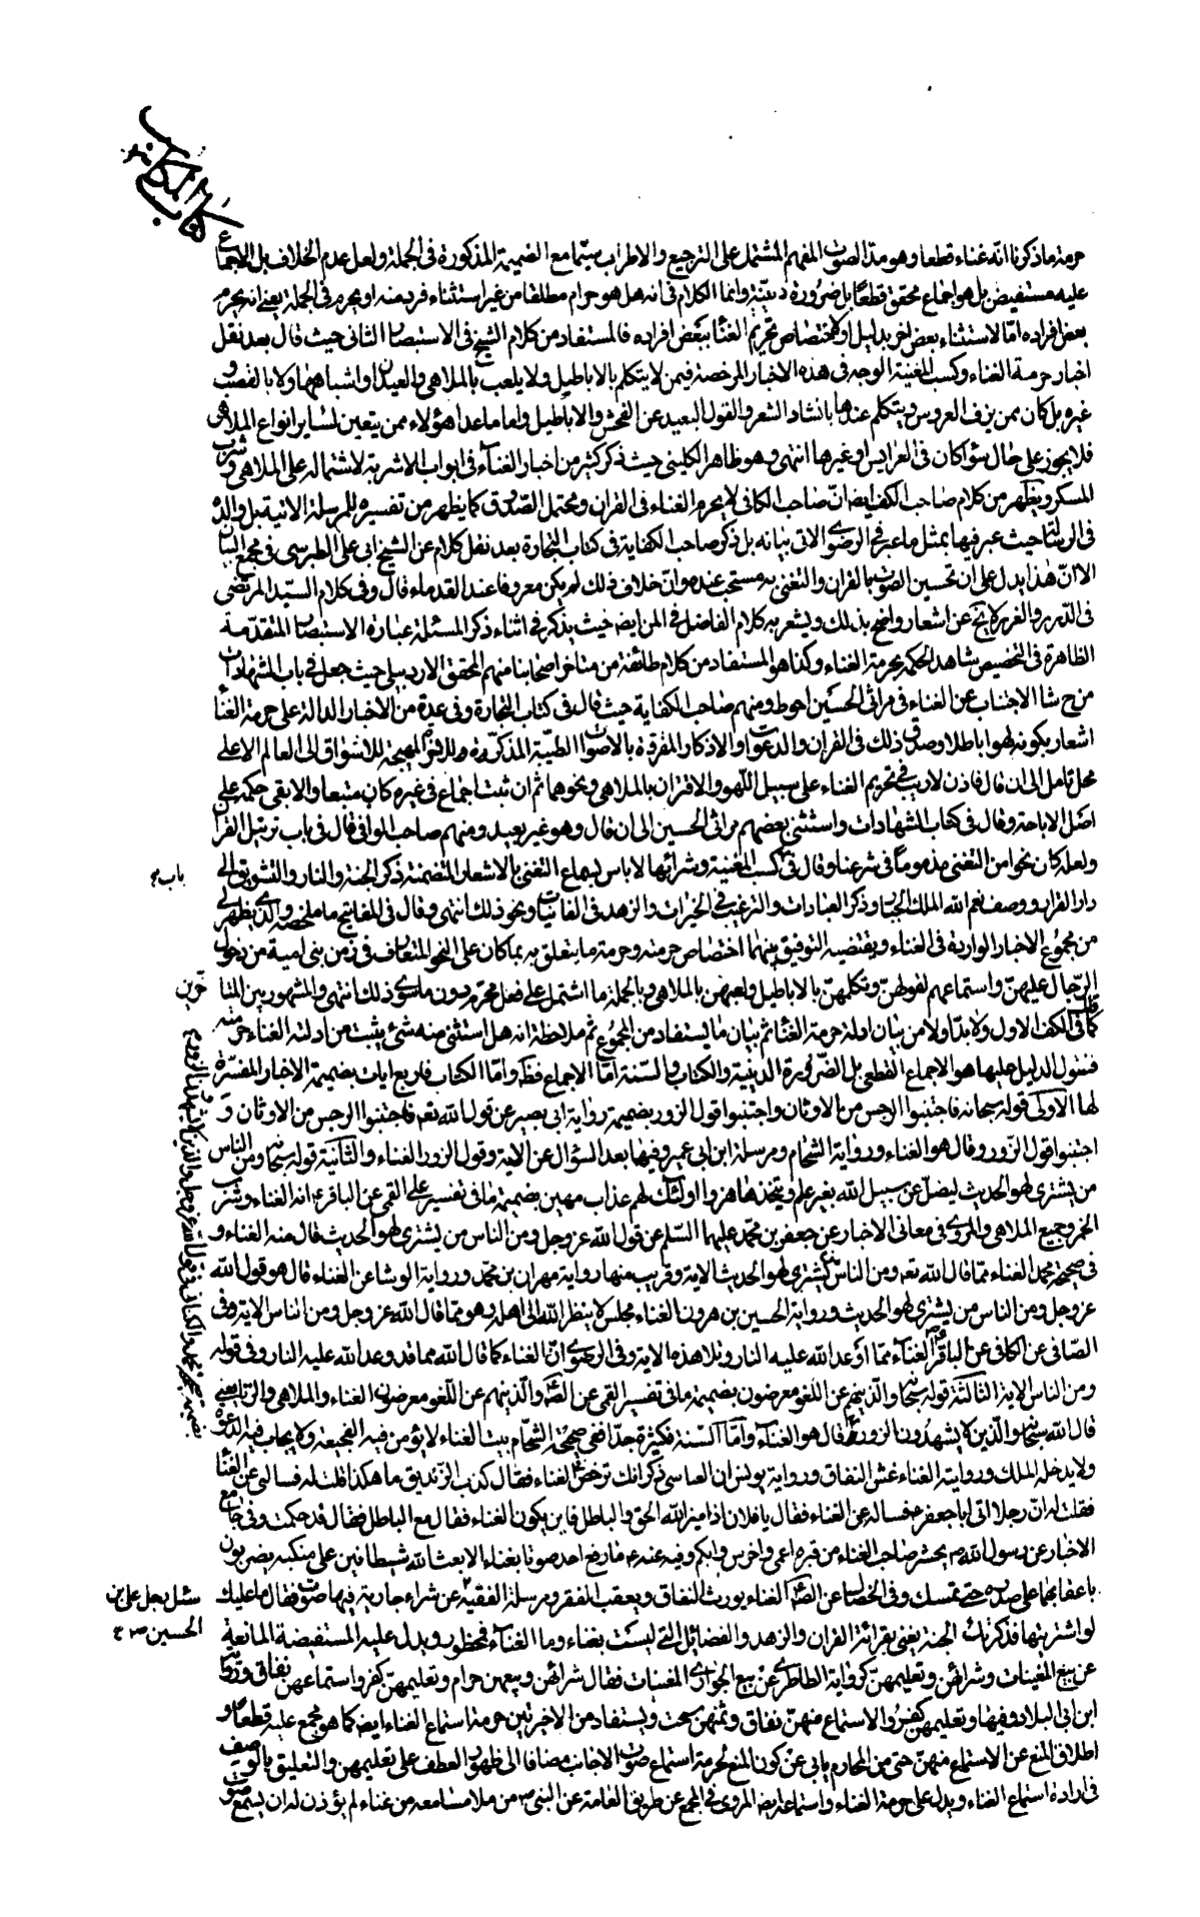 كتاب المكاسب
حرمة ما ذكرنا انّه غناء قطعا وهو مدّ الصوت المفهم المشتمل على الترجيع والاطراب سيّما مع الضميمة المذكورة فى الجملة ولعل عدم الخلاف بل الاجماع
عليه مستفيض بل هو اجماع محقق قطعًا بل ضرورة دينيّة وانما الكلام فى انه هل هو حرام مطلقا من غير استثناء فرد منه او يحرم فى الجملة يعنى انه يحرم
بعض افراده امّا لاستثناء بعض اخر بدليل او لاختصاص تحريم الغنا ببعض افراده فالمستفاد من كلام الشيخ فى الاستبصار الثانى حيث قال بعد نقل
اخبار حرمة الغناء وكسب المغنية الوجه فى هذه الاخبار الرخصة فيمن لا يتكلم بالاباطيل ولا يلعب بالملاهى والعيدان واشباهها ولا بالقصب و
غيره بل كان ممن يزف العروس ويتكلم عندها بانشاد الشعر والقول البعيد عن الفحش والاباطيل واما ما عدا هؤلاء ممن يتغنين لساير انواع الملاهى
فلا يجوز على حال سواء كان فى العرايس او غيرها انتهى وهو ظاهر الكلينى حيث ذكر كثير من اخبار الغناء فى ابواب الاشربة لاشتماله على الملاهى وشرب
المسكر ويظهر من كلام صاحب الكفاية ايضا انّ صاحب الكافى لا يحرم الغناء فى القران ومحتمل الصّدوق كما يظهر من تفسيره للمرسلة الاتية بل والده
فى الرسالة حيث عبر فيها بمثل ما عبر فى الرضوى الاتى بيانه بل ذكر صاحب الكفاية فى كتاب التجارة بعد نقل كلام عن الشيخ ابى على الطبرسى فى مجمع البيان
الا انّ هذا يدل على ان تحسين الصوت بالقران والتغنى به مستحب عنده وانّ خلاف ذلك لم يكن معروفا عند القدماء قال وفى كلام السيّد المرتضى
فى الدرر والغرر لا يخ عن اشعار واضح بذلك ويشعر به كلام الفاضل فى المن ايضا حيث يذكر فى اثناء ذكر المسئلة عبارة الاستبصار المتقدمة
الظاهرة فى التخصيص شاهد الحكمه بحرمة الغناء وكذا هو المستفاد من كلام طائفة من متاخر اصحابنا منهم المحقق الاردبيلى حيث جعل فى باب الشهادات
من ح شا الاجتناب عن الغناء فى مراثى الحسين احوط ومنهم صاحب الكفاية حيث قال فى كتاب التجارة وفى عدة من الاخبار الدالة على حرمة الغنا
اشعار بكونه لهوا باطلا وصدق ذلك فى القران والدعوات والاذكار المقروة بالاصوات الطيّبة المذكّرة للاخرة المهيجة للاشواق الى العالم الاعلى
محل تامل الى ان قال فاذن لا ريب فى تحريم الغناء على سبيل اللّهو والاقتران بالملاهى ونحوهما ثم ان ثبت اجماع فى غيره كان متبعا والا بقى حكمه على
اصل الاباحة وقال فى كتاب الشهادات واستثنى بعضهم مراثى الحسين الى ان قال وهو غير بعيد ومنهم صاحب الوافى قال فى باب ترتيل القران
ولعله كان نحوا من التغنى مذموما فى شرعنا وقال فى كسب المغنية وشرائها لا باس بسماع التغنى بالاشعار المتضمنة ذكر الجنة والنار والتشويق الى
باب
دار القرار ووصف نعم الله الملك الجبار وذكر العبادات والترغيب فى الخيرات والزهد فى الفانيات ونحو ذلك انتهى وقال فى المفاتيح ما ملخصه والذى يظهر لى
من مجموع الاخبار الواردة فى الغناء ويقتضيه التوفيق بينهما اختصاص حرمته وحرمة ما يتعلق به بما كان على النحو المتعارف فى زمن بنى امية من دخول
الرّجال عليهنّ واستماعهم لقولهنّ وتكلمهنّ بالاباطيل ولعبهن بالملاهى وبالجملة ما اشتمل على فعل محرّم دون ما سوى ذلك انتهى والمشهور بين المتا
خرين
كما فى الكف الاول ولا بدّ اولا من بيان ادلة حرمة الغنا ثم بيان ما يستفاد من المجموع ثم ملاحظة انه هل استثنى منه شىء يثبت من ادلته الغناء حرمته
فنقول الدليل عليها هو الاجماع القطعى بل الضّرورة الدينية والكتاب والسّنة امّا الاجماع فظ وامّا الكتاب فاربع ايات بضميمة الاخبار المفسّرة
لها الاولى قوله سبحانه فاجتنبوا الرجس من الاوثان واجتنبوا قول الزور بضميمة رواية ابى بصير عن قول الله تعم فاجتنبوا الرجس من الاوثان و
اجتنبوا قول الزّور وقال هو الغناء ورواية الشّحام ومرسلة ابن ابى عمير وفيها بعد السّؤال عن الاية وقول الزور الغناء والثّانية قوله سبحانه ومن الناس
من يشترى لهو الحديث ليضلّ عن سبيل الله بغير علم ويتّخذها هزوا اولئك لهم عذاب مهين بضميمة ما فى تفسير على القمى عن الباقر ع انه الغناء وشرب
الخمر وجميع الملاهى والمروى فى معانى الاخبار عن جعفر بن محمّد عليهما السّلم عن قول الله عز وجل ومن الناس من يشترى لهو الحديث قال منه الغناء و
فى صحيحة محمد الغناء ممّا قال الله تعم ومن الناس من يشترى لهو الحديث الاية وقريب منها رواية مهران بن محمّد ورواية الوشا عن الغناء قال هو قول الله
عز وجل ومن الناس من يشترى لهو الحديث ورواية الحسين بن هرون الغناء مجلس لا ينظر الله الى اهله وهو ممّا قال الله عز وجل ومن الناس الاية وفى
الصّافى عن الكافى عن الباقر الغناء ممّا اوعد الله عليه النار وتلا هذه الاية وفى الرضوى انّ الغناء كما قال الله مما قد وعد الله عليه النار وفى قوله
ومن الناس الاية الثالثة قوله سبحانه والّذين هم عن اللّغو معرضون بضميمة ما فى تفسير القمى عن الصّ والّذينهم عن اللّغو معرضون الغناء والملاهى والرّابعة
قال الله سبحانه والّذين لا يشهدون الزور قال هو الغناء وامّا السّنة فكثيرة جدّا ففى صحيحة الشّحام بيت الغناء لا يؤمن فيه الفجيعة ولا يجاب فيه الدّعوة
بضميمة صحيحة محمد والكنانى فى قول الله عز وجل والذين لا يشهدون الزور
ولا يدخله الملك ورواية الغناء غش النفاق ورواية يونس ان العباسى ذكر انك ترخص فى الغناء فقال كذب الزّنديق ما هكذا قلت له فسالنى عن الغنا
فقلت له انّ رجلا اتى ابا جعفر ع فساله عن الغناء فقال يا فلان اذا ميّز الله الحق والباطل فاين يكون الغناء فقال مع الباطل فقال قد حكمت وفى جامع
الاخبار عن رسول الله ص يحشر صاحب الغناء من قبره اعمى واخرس وابكم وفيه عنه ع ما رفع احد صوتا بغناء الا بعث الله شيطانين على منكبه يضربون
باعقابهما على صدره حتى يمسك وفى الخصال عن الصّ الغناء يورث النفاق ويعقب الفقر ومرسلة الفقيه عن شراء جارية فيها صوت فقال ما عليك
سئل رجل على بن
الحسين ع
لو اشتريتها فذكرتك الجنة يعنى بقرائة القران والزهد والفضائل التى ليست بغناء وما الغناء فمحظور ويدل عليه المستفيضة المانعة
عن بيع المغنيات وشرائهنّ وتعليمهنّ كرواية الطاطرى عن بيع الجوارى المغنيات فقال شرائهن وبيعهن حرام وتعليمهنّ كفر واستماعهن نفاق ورواية
ابن ابى البلاد وفيها وتعليمهن كفر والاستماع منهنّ نفاق وثمنهن سحت ويستفاد من الاخيرتين حرمة استماع الغناء ايضا كما هو مجمع عليه قطعا و
اطلاق المنع عن الاستماع منهنّ حتى من المحارم يابى عن كون المنع لحرمة استماع صوت الاجانب مضافا الى ظهور العطف على تعليمهن والتعليق بالوصف
فى ارادة استماع الغناء ويدل على حرمة الغناء واستماعه ايضا المروى فى المجمع عن طريق العامة عن النبى ص من ملا مسامعه من غناء لم يؤذن له ان يسمع صوت